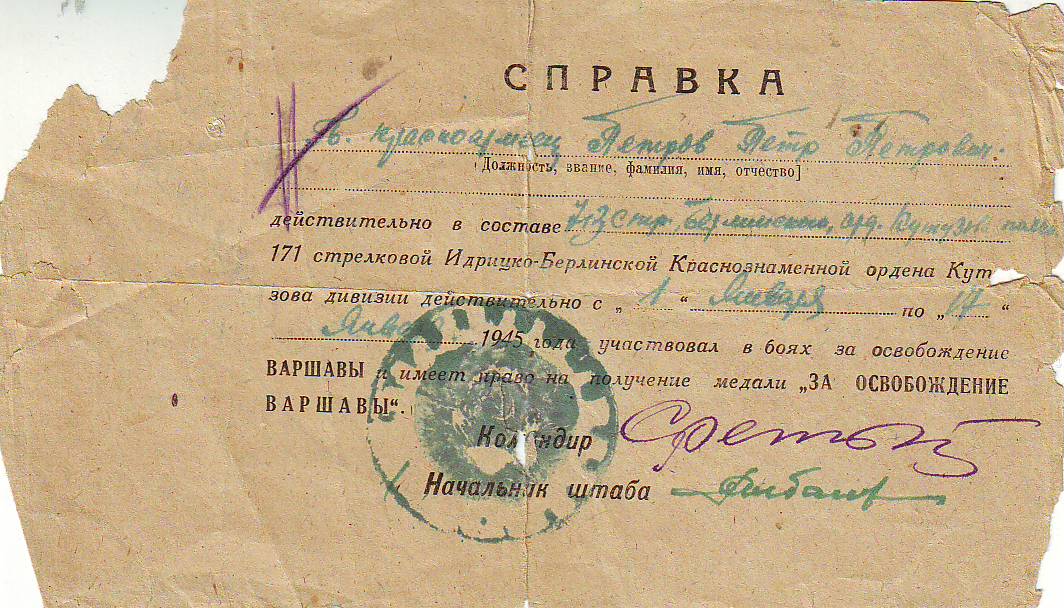 СПРАВКА
Гв. красноармеец Петров Петр Петрович.
[Должность, звание, фамилия, имя, отчество]
действительно в составе 713 стр. Берлинского, орд. Кутузова полка
171 стрелковой Идрицко-Берлинской Краснознаменной ордена Куту
зова дивизии действительно с „ 1 “ Января по „ 17 “
Января 1945 года участвовал в боях за освобождение
ВАРШАВЫ и имеет право на получение медали „ЗА ОСВОБОЖДЕНИЕ
ВАРШАВЫ“.
Командир
Начальник штаба